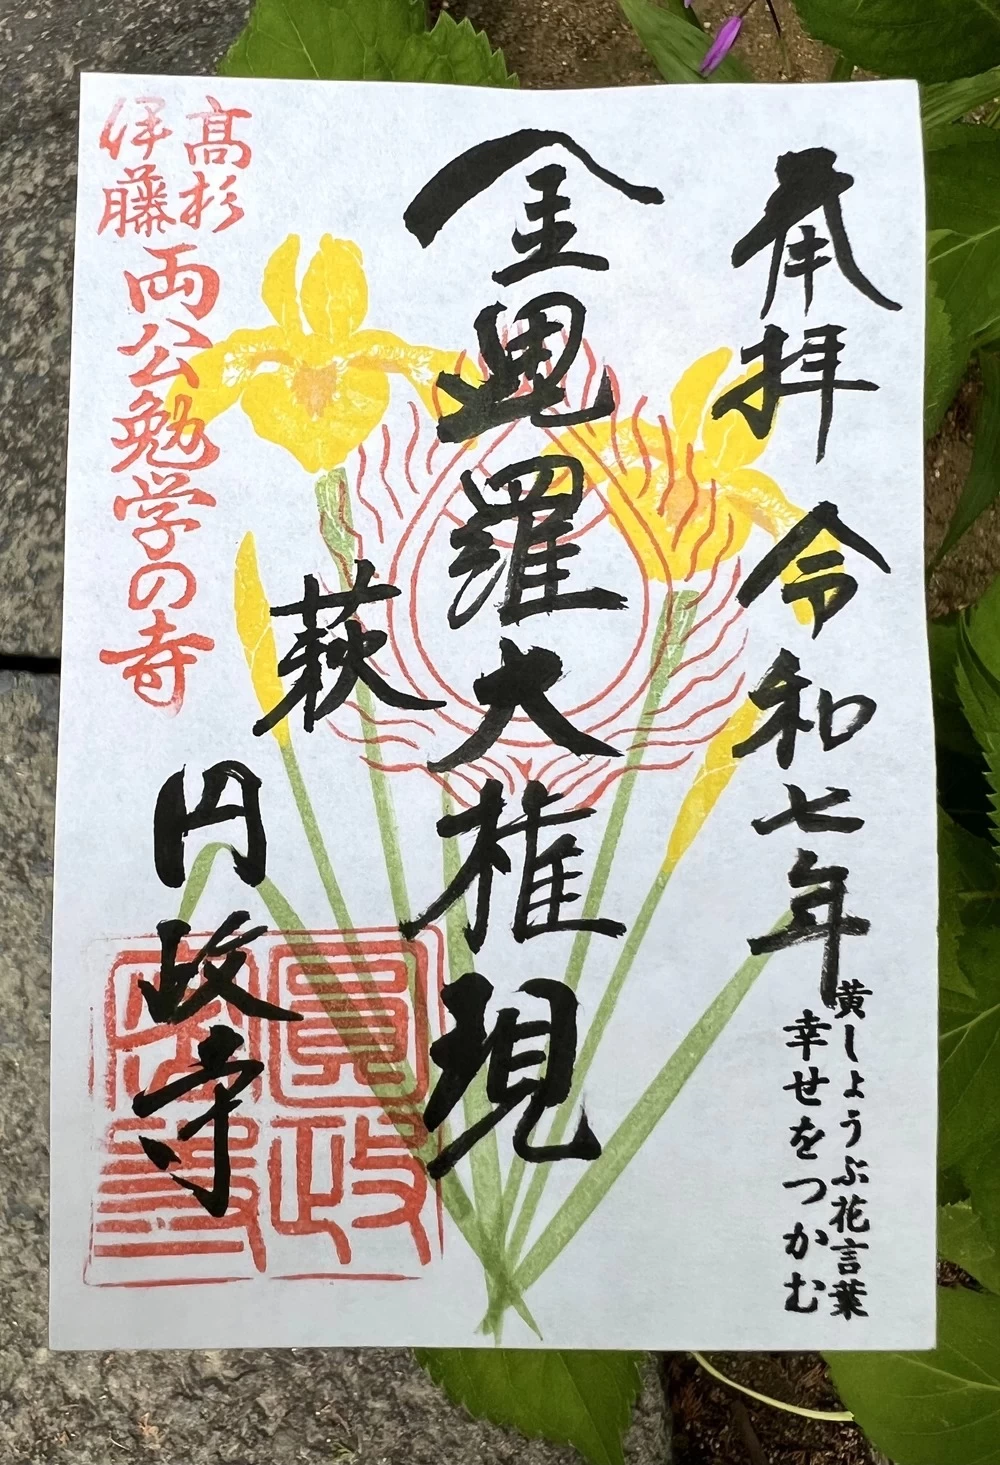 奉拝 令和七年
黄しょうぶ花言葉
幸せをつかむ
金毘羅大権現
萩
円政寺
高杉
伊藤
両公勉学の寺
圓政